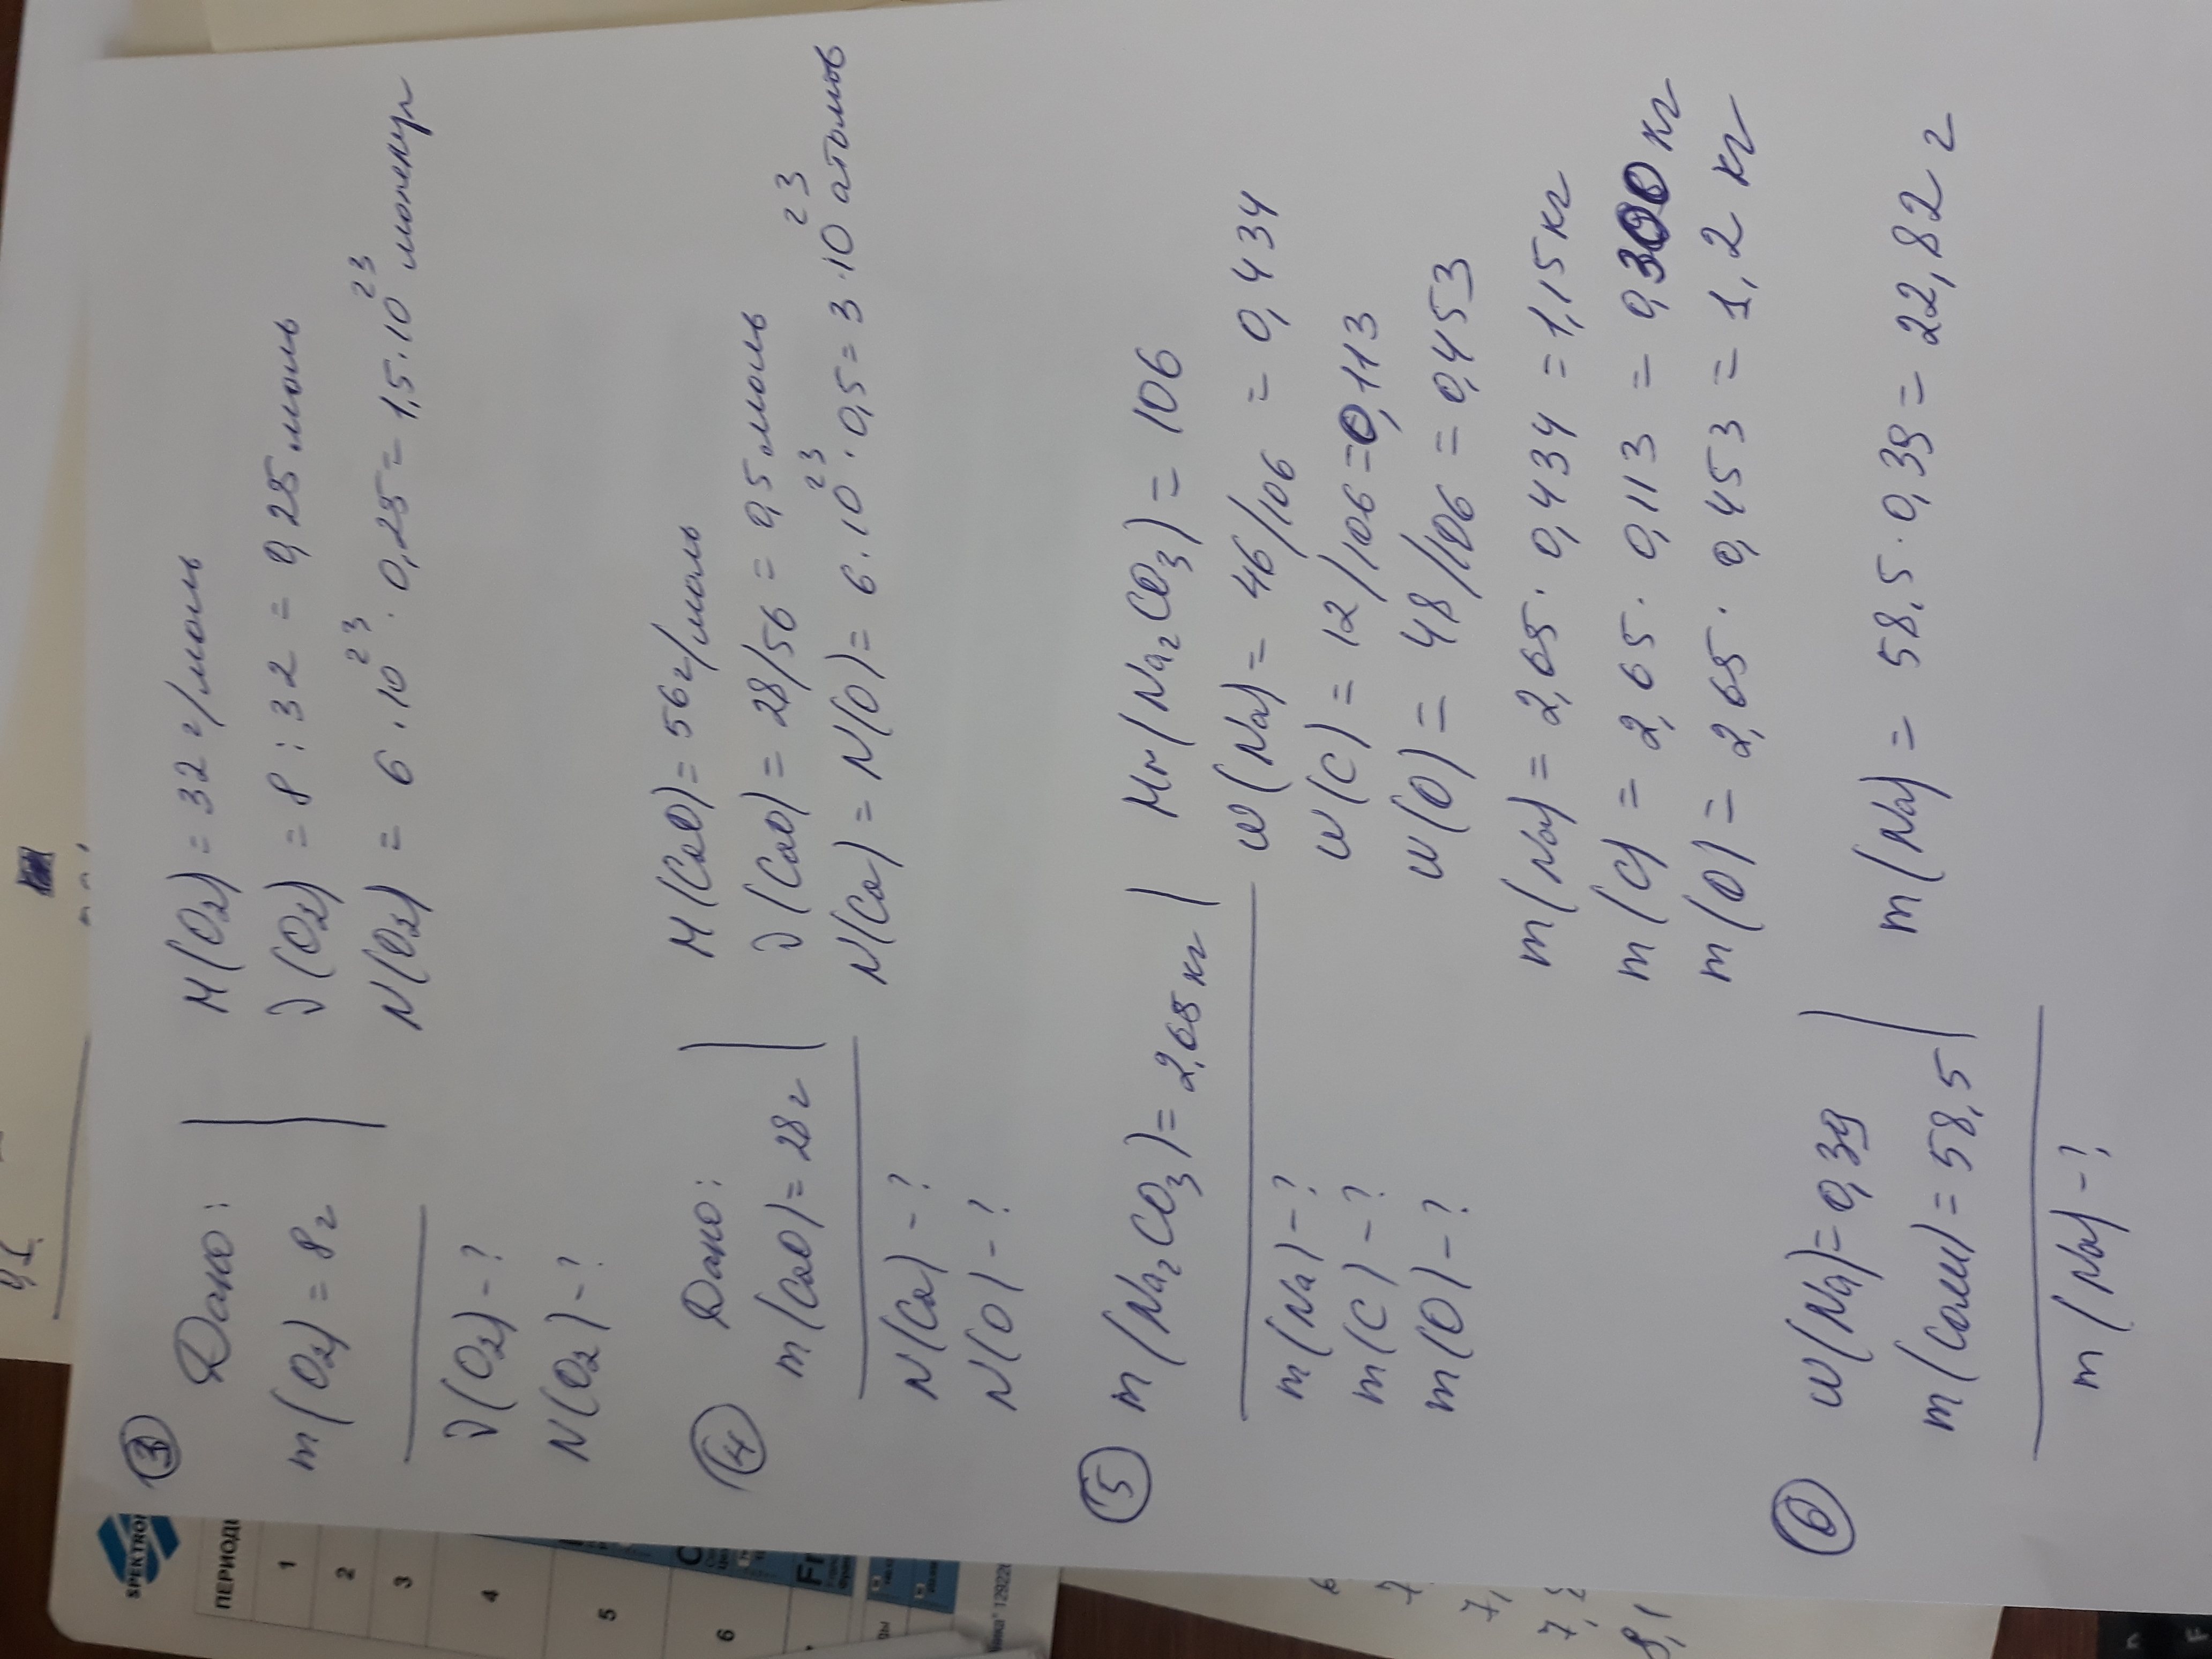 ③ Дано:
m(O2) = 8г
ν(O2) - ?
N(O2) - ?
M(O2) = 32 г/моль
ν(O2) = 8 : 32 = 0,25 моль
N(O2) = 6 · 10²³ · 0,25 = 1,5 · 10²³ молекул
④ Дано:
m(CaO) = 28 г
N(Ca) - ?
N(O) - ?
M(CaO) = 56 г/моль
ν(CaO) = 28/56 = 0,5 моль
N(Ca) = N(O) = 6 · 10²³ · 0,5 = 3 · 10²³ атомов
⑤ m(Na2CO3) = 2,65 кг
m(Na) - ?
m(C) - ?
m(O) - ?
Mr(Na2CO3) = 106
w(Na) = 46/106 = 0,434
w(C) = 12/106 = 0,113
w(O) = 48/106 = 0,453
m(Na) = 2,65 · 0,434 = 1,15 кг
m(C) = 2,65 · 0,113 = 0,300 кг
m(O) = 2,65 · 0,453 = 1,2 кг
⑥ w(Na) = 0,39
m(соли) = 58,5
m(Na) - ?
m(Na) = 58,5 · 0,39 = 22,82 г
SPEKTR
ПЕРИОДЫ
1
2
3
4
5
6
Fr